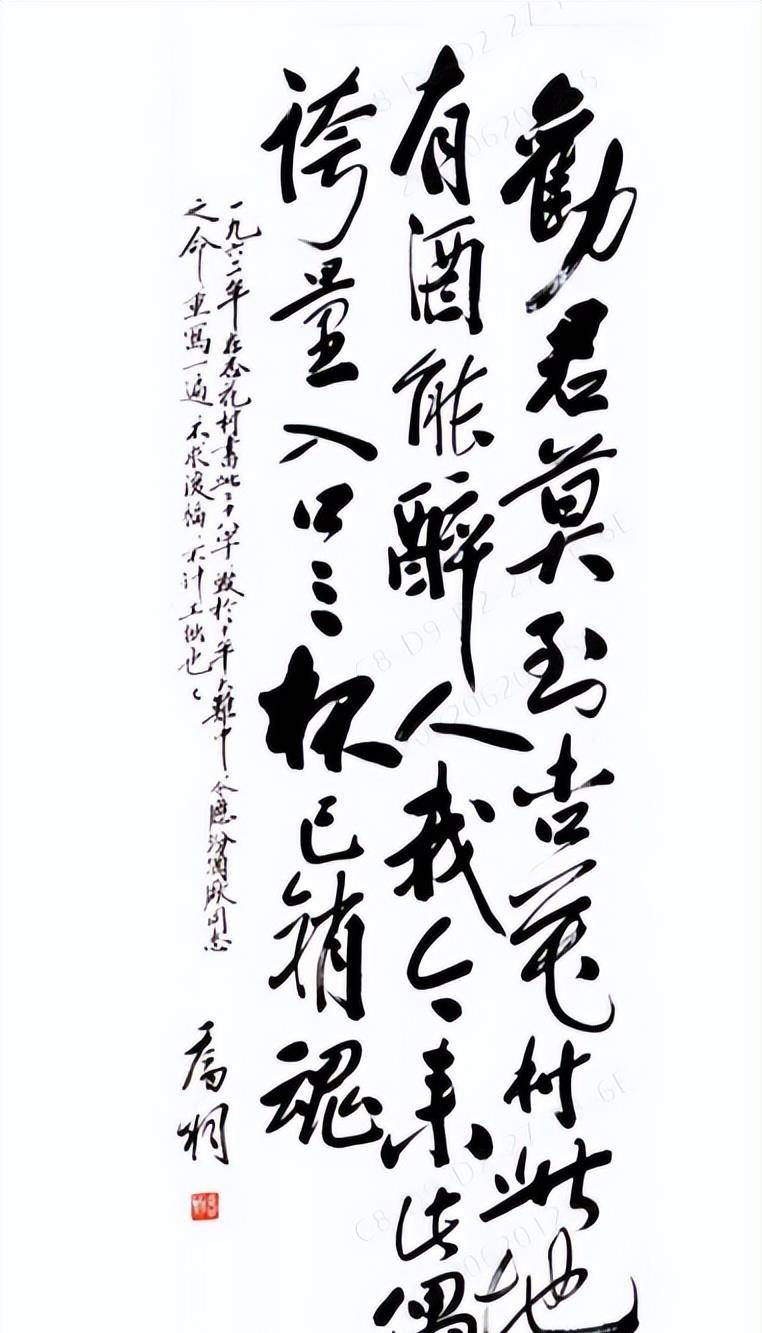 勸君莫到杏花村此地
有酒能醉人我今来此偶
誇量入口三杯已銷魂
一九六二年在杏花村書此二十八字毀於十年大難中今應汾酒廠同志
之命重寫一遍不求不計工拙也
喬羽